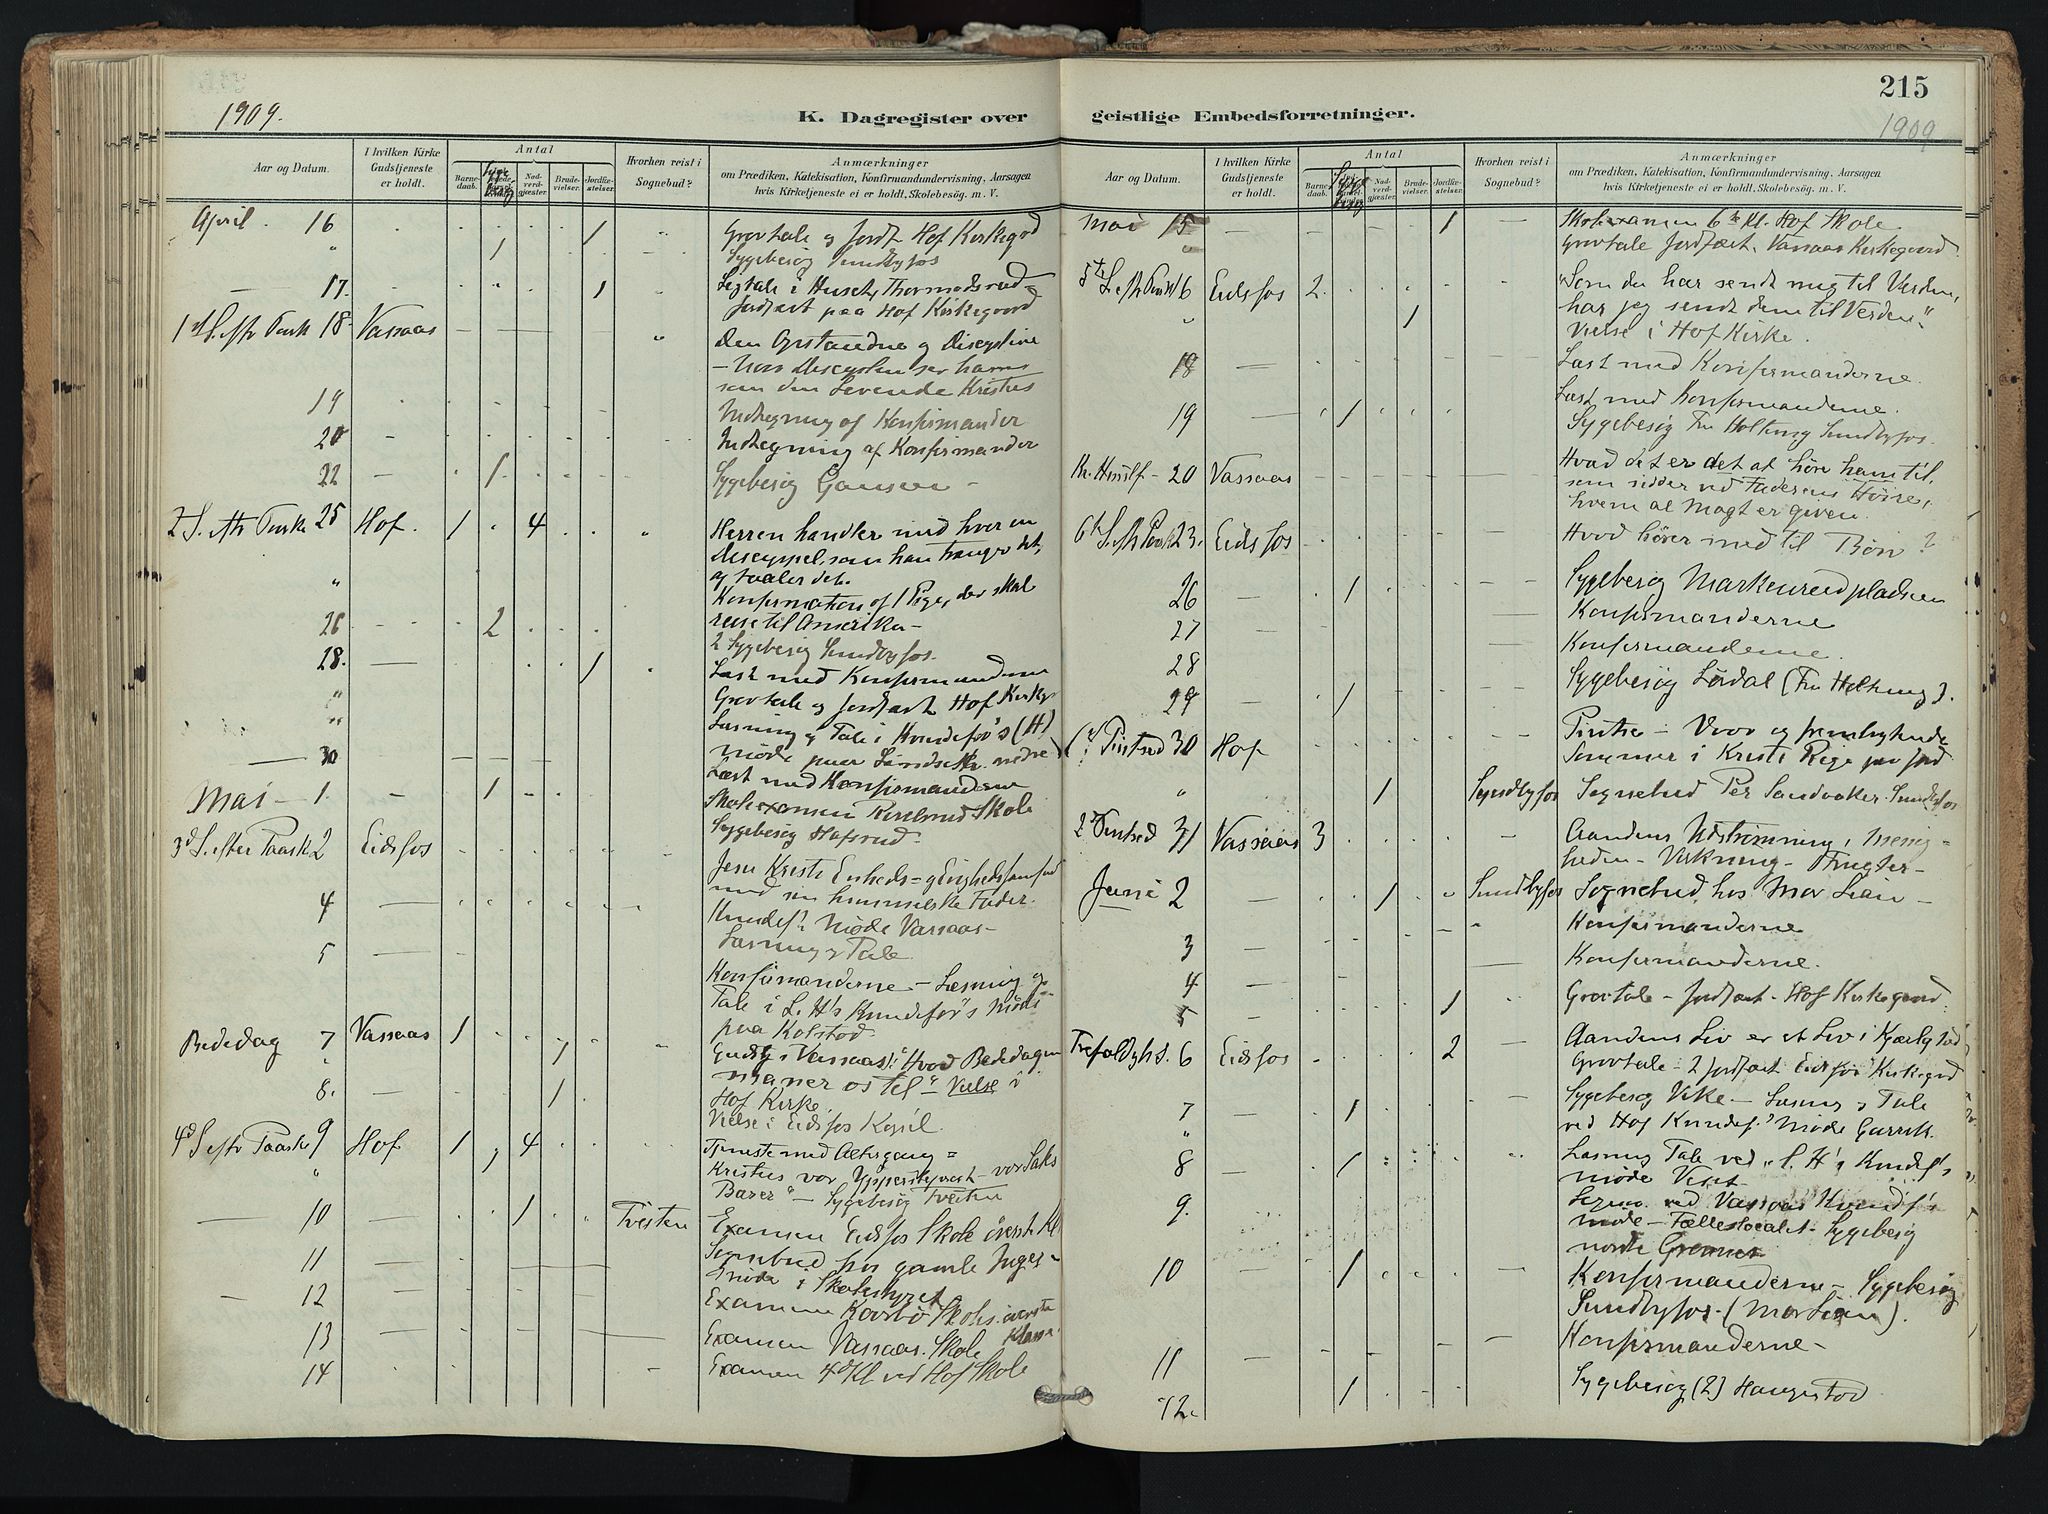 1909.
K. Dagregister over
Aar og Datum.
I hvilken Kirke Gudstjeneste er holdt.
Antal
Barne-daab.
Syge
Nad-verd-gjæster.
Brude-vielser.
Jordfæ-stelser.
Hvorhen reist i Sognebud?
Anmærkninger
om Prædiken, Katekisation, Konfirmandundervisning, Aarsagen
hvis Kirketjeneste ei er holdt, Skolebesög. m. V.
April 16 1 Gravtale og Jordf. Hof Kirkegd
" 1 Sygebesög Sundbyfos
17. 1 Ligtale i Huset, Thormodsrud
Jordfæst paa Hof Kirkegaard
1st S. eftr Pask 18 Vassaas Den Opstandne og Disciplene
som den Levende Kristus
19 Indtegning af Konfirmander
20 Indtegning af Konfirmander
22 1 Sygebesög
2 S. eftr Paske 25 Hof 1 4 Herren handler med hver en
Discippel, som han trænger det,
og taaler det.
" Konfirmation af 1 Pige, der skal
reise til Amerika
26 2 2 Sygebesög Sundbyfos.
28. 1 Læst med Konfirmanderne
" Gravtale og Jordfæst Hof Kirkeg
" Læsning og Tale i Kvindefor's (H)
møde paa
30 Læst med Konfirmanderne
Mai 1. 1 Skoleexamen Skole
Sygebesög Hafsrud.
3d S. efter Paask 2 Eidsfos Jesu Kristi Enheds
med sin himmelske Fader.
4 Kvindef. Møde Vassaas
Læsning & Tale
5 Konfirmanderne - Læsning og
Tale i L. H's Kvindefor's Møde
paa Kolstad
Bededag 7 Vassaas 1 1 Gudstj. i Vassaas: "Hvad Bededagen
maner os til" Vielse i
Hof Kirke.
8. 1 Vielse i Eidsfos Kapel.
4d S. eftr Paaske 9 Hof 1 4 Tjeneste med Altergang =
Kristus vor Ypperstepræst
" Sygebesög Tveiten
10 1 Tveiten Examen Eidsfos Skole överst Kl.
Sognebud hos gamle
11 Möde i Skolestyret
12 Examen Skole överste
Klasse
13 Examen Vassaas Skole
14 Examen 4d Kl ved Hof Skole
215
1909
geistlige Embedsforretninger.
Aar og Datum.
I hvilken Kirke Gudstjeneste er holdt.
Antal
Barne-daab.
Syge
Nad-verd-gjæster.
Brude-vielser.
Jordfæ-stelser.
Hvorhen reist i Sognebud?
Anmærkninger
om Prædiken, Katekisation, Konfirmandundervisning, Aarsagen
hvis Kirketjeneste ei er holdt, Skolebesög. m. V.
Mai 15 1 Skoleexamen 6te Kl. Hof Skole
" Gravtale Jordfæst. Vassaas Kirkegaard
5te S. eftr Pask 16 Eidsfos 2 "Som du har sendt mig til Verden,
har jeg sendt dem til Verden"
" 1 Vielse i Hof Kirke.
18 Læst med Konfirmanderne.
19 1 Læst med Konfirmanderne.
Sygebesög Fru Holtung Sundbyfos
Kr. Himlf 20 Vassaas Hvad det er det at høre ham til,
som sidder ved Faderens Høire,
hvem al Magt er given.
6te S. eftr Pask 23. Eidsfos Hvad hører med til Bøn?
26 1 Sygebesög
27 Konfirmanderne
28 Konfirmanderne.
29 1 Sygebesög Lødal (Fru Holtung).
1st Pintsed 30 Hof Pintse - Vaar og frembrydende
Sommer i Kristi Rige paa Jord
" 1 Sundbyfos Sognebud Per Sandaaker Sundbyfos
2d Pintsed 31 Vassaas 3 Aandens Udstrømning i Menig=
heden - Virkning - Frugter
Juni 2 1 Sundbyfos Sognebud hos Mor Lian
3 Konfirmanderne
4 Konfirmanderne.
5 1 Gravtale - Jordfæst - Hof Kirkegaard
Trefoldighd. 6 Eidsfos 2 Aandens Liv er et Liv i Kjærlighed
Gravtale - 2 Jordfæst Eidsfos Kirkegrd
7 1 Sygebesög Vike - Læsning & Tale
" ved Hof Kvindef.'s Møde
8 1 Læsning Tale ved L. H's Kvindef's
møde
9. Læsning ved Vassaas Kvindf's
møde - Fælleslocalet - Sygebesög
nordre Grønner
10 1 Konfirmanderne - Sygebesög
Sundbyfos (Mor Lian).
11 Konfirmanderne
12. 1 Sygebesög (2) Haugestad